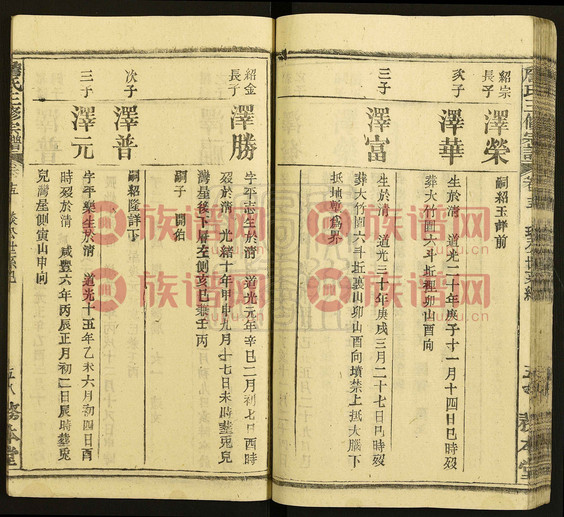 紹宗
長子
澤榮
嗣紹玉詳前
次子
澤華
生於清 道光二十年庚子十一月十四日巳時歿
葬大竹園六斗坵裡卯山酉向
三子
澤富
生於清 道光三十年庚戌三月二十七日巳時歿
葬大竹園六斗坵裏山卯山酉向墳禁上抵大腦下
抵地墈為界
紹金
長子
澤勝
字平志生於清 道光元年辛巳二月初七日酉時
歿於清 光緒十年甲申九月十七日未時葬兎兒
灣屋後下層左側亥巳兼壬丙
嗣子 開伯
次子
澤普
嗣紹隆詳下
三子
澤元
字平樂生於清 道光十五年乙未六月初四日酉
時歿於清 咸豐六年丙辰正月初二日辰時葬兎
兒灣屋側寅山申向
氏三修宗譜
務本堂
族谱网
族谱网
族谱网
族谱网